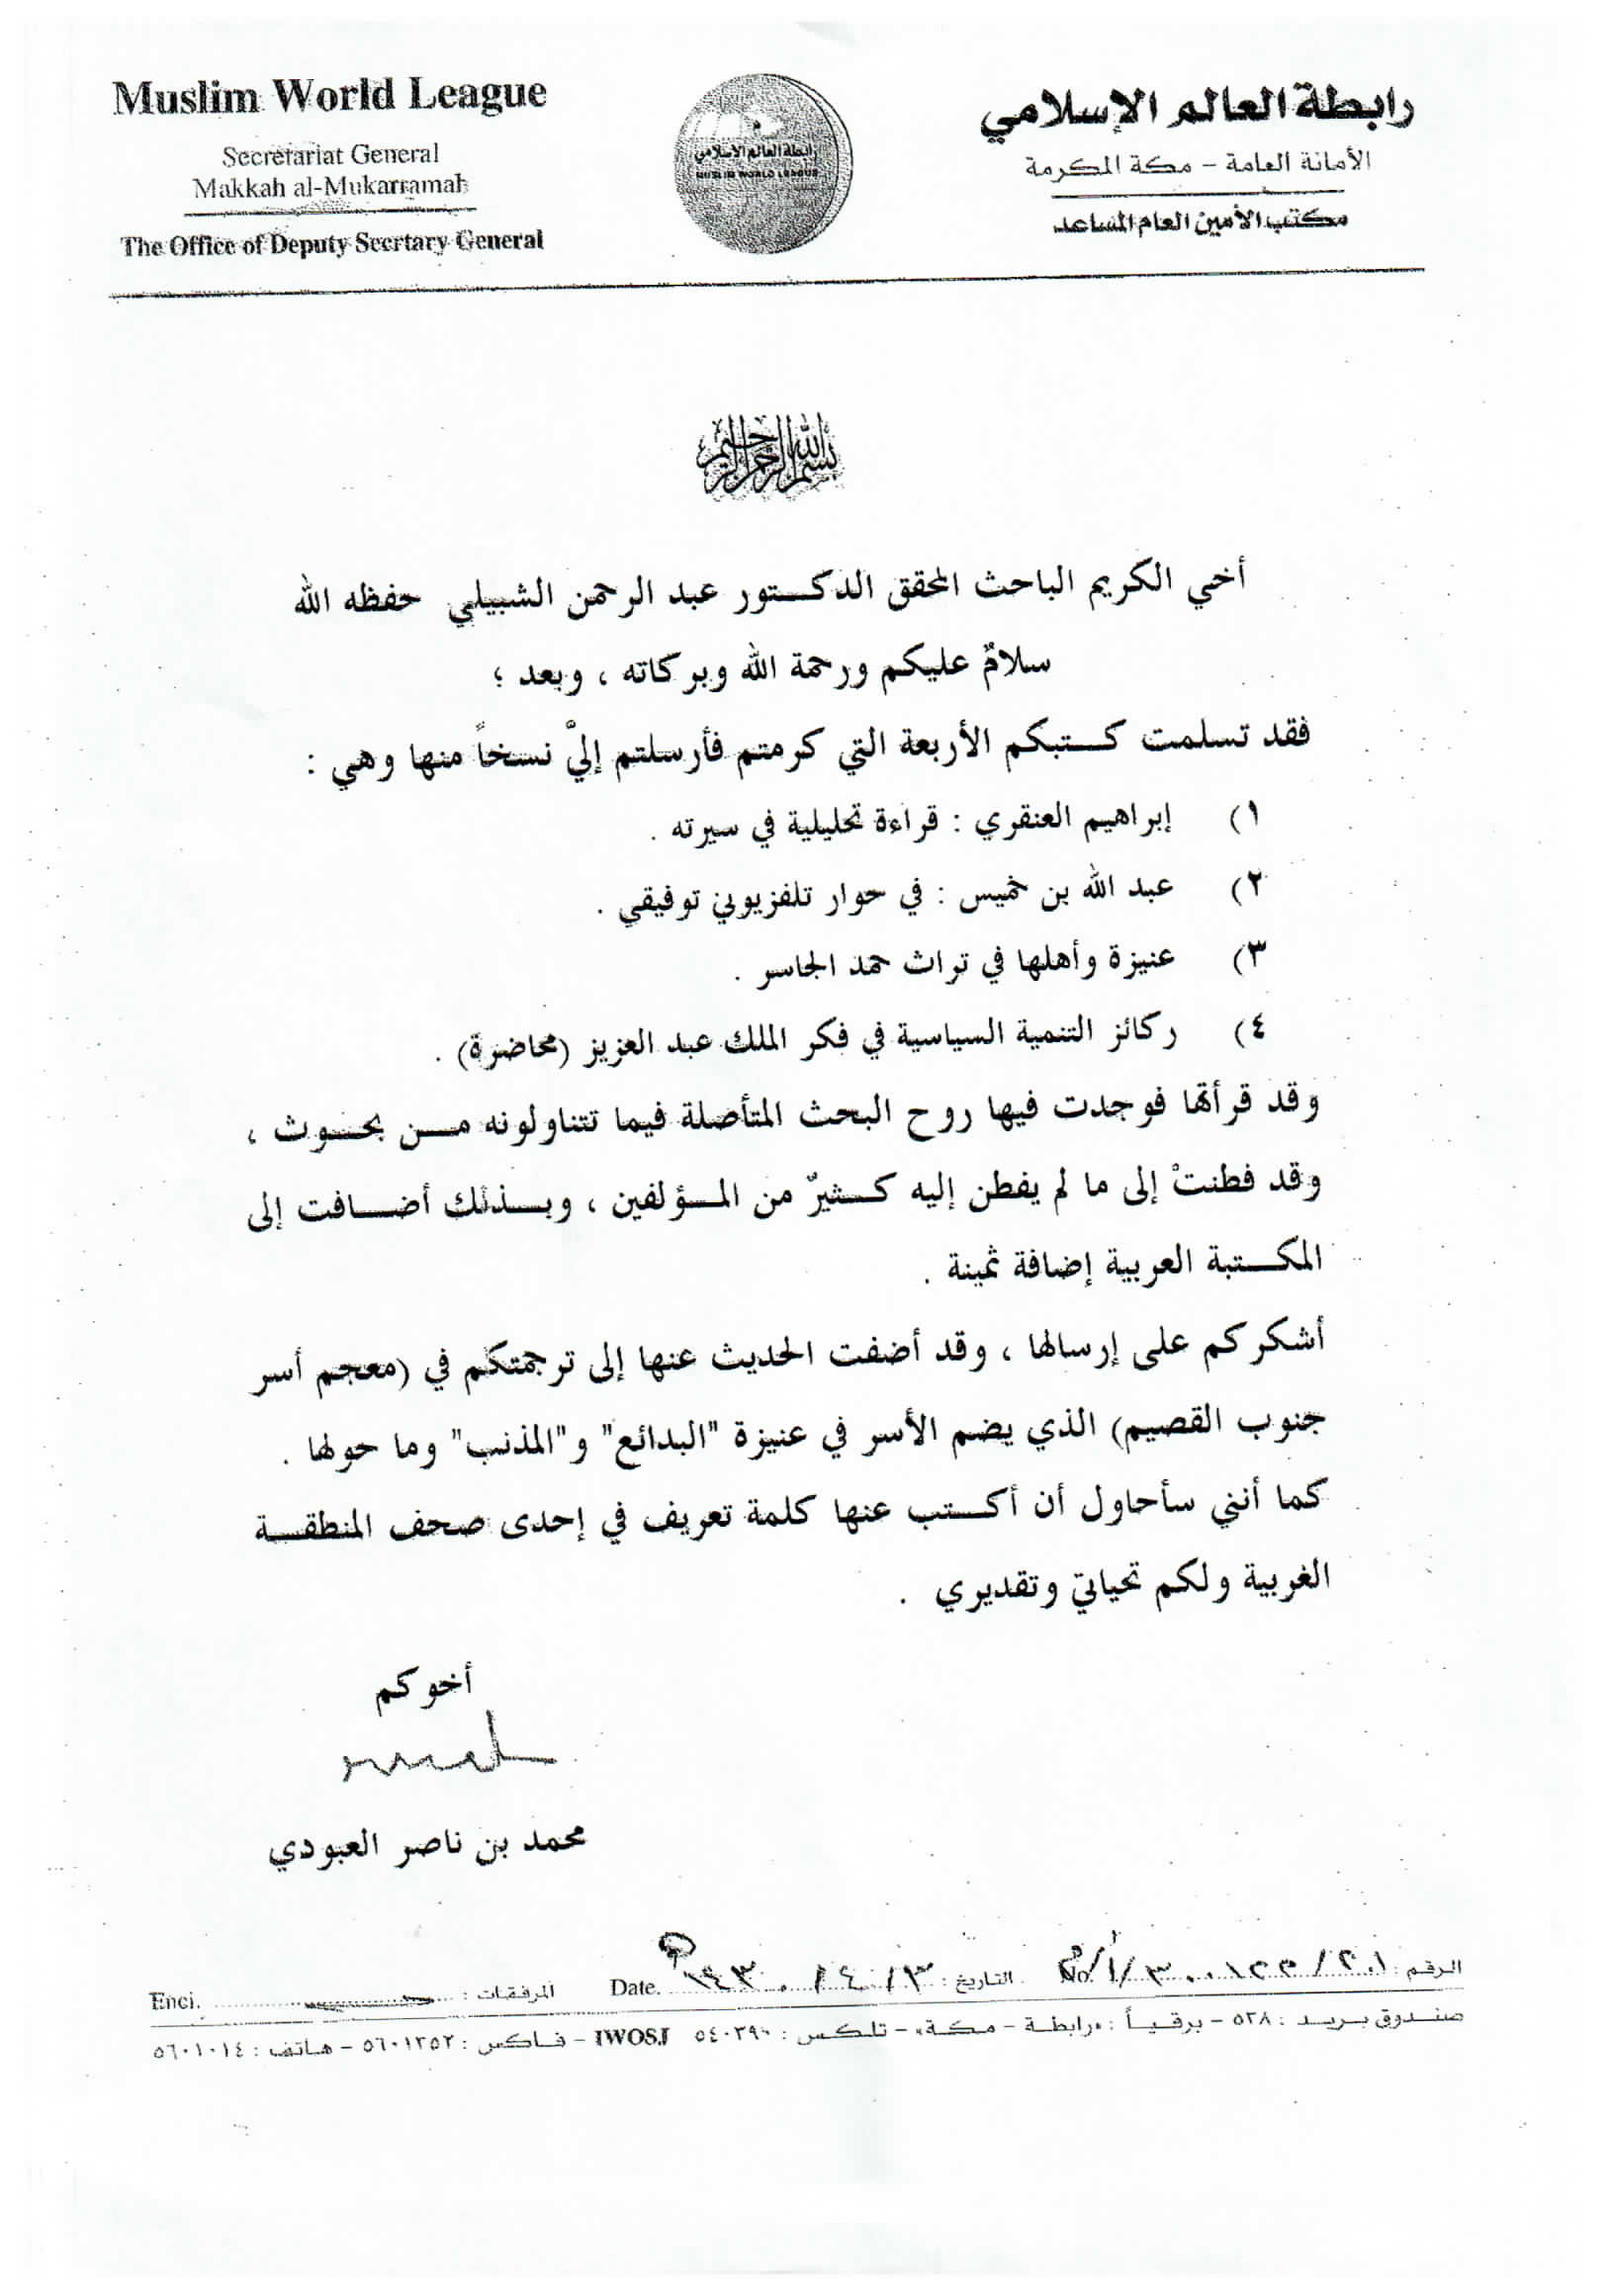 Muslim World League
Secretariat General
Makkah al-Mukarramah
The Office of Deputy Secrtary General
رابطة العالم الإسلامي
MUSLIM WORLD LEAGUE
رابطة العالم الإسلامي
الأمانة العامة - مكة المكرمة
مكتب الأمين العام المساعد
بسم الله الرحمن الرحيم
أخي الكريم الباحث المحقق الدكتور عبد الرحمن الشبيلي حفظه الله
سلامٌ عليكم ورحمة الله وبركاته ، وبعد ؛
فقد تسلمت كتبكم الأربعة التي كرمتم فأرسلتم إليَّ نسخاً منها وهي :
١) إبراهيم العنقري : قراءة تحليلية في سيرته .
٢) عبد الله بن خميس : في حوار تلفزيوني توفيقي .
٣) عنيزة وأهلها في تراث حمد الجاسر .
٤) ركائز التنمية السياسية في فكر الملك عبد العزيز (محاضرة) .
وقد قرأتها فوجدت فيها روح البحث المتأصلة فيما تتناولونه من بحوث ،
وقد فطنتْ إلى ما لم يفطن إليه كثيرٌ من المؤلفين ، وبذلك أضافت إلى
المكتبة العربية إضافة ثمينة .
أشكركم على إرسالها ، وقد أضفت الحديث عنها إلى ترجمتكم في (معجم أسر
جنوب القصيم) الذي يضم الأسر في عنيزة "البدائع" و"المذنب" وما حولها .
كما أنني سأحاول أن أكتب عنها كلمة تعريف في إحدى صحف المنطقة
الغربية ولكم تحياتي وتقديري .
أخوكم
محمد بن ناصر العبودي
الرقم : No. التاريخ : ٣/٤/١٤٣٠ Date. المرفقات : Encl.
صندوق بريد : ٥٢٨ - برقياً : «رابطة - مكة» - تلكس : ٥٤٠٣٩٠ IWOSJ - فاكس : ٥٦٠١٢٥٢ - هاتف : ٥٦٠١٠١٤